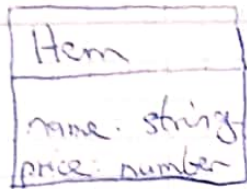 Item
name: string
price: number